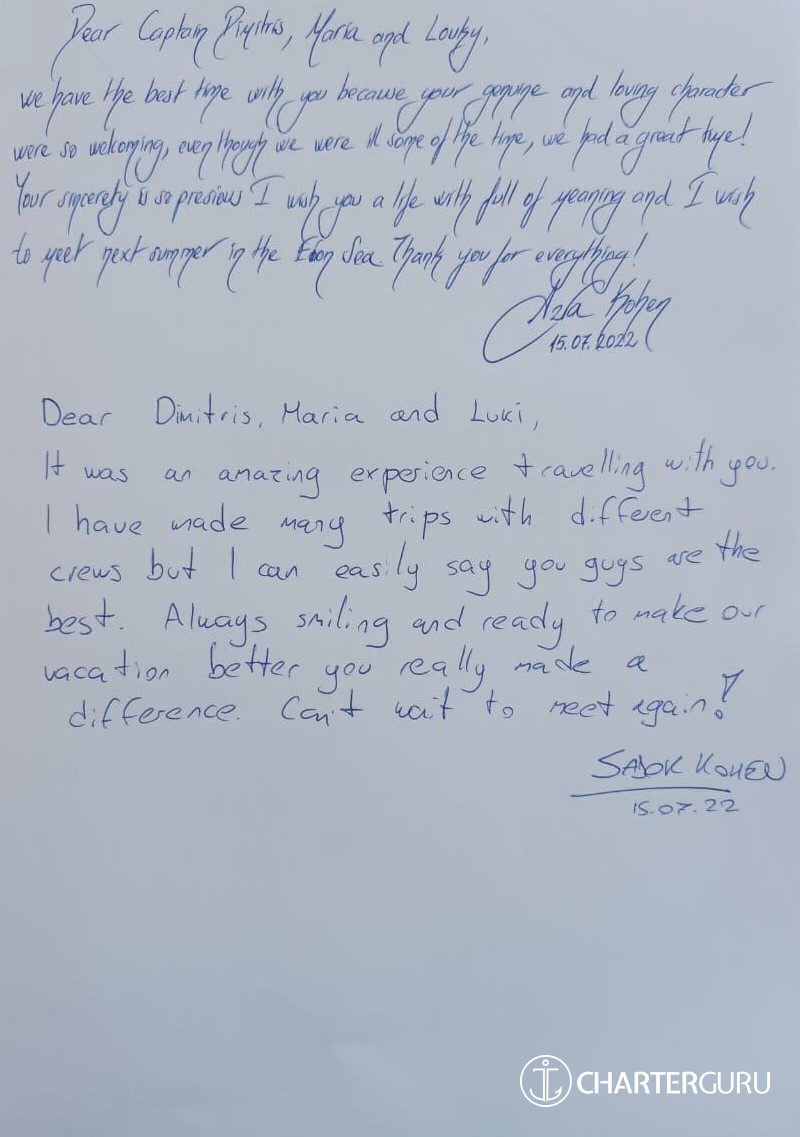 Dear Captain Dimitris, Maria and Louky,
we have the best time with you because your genuine and loving character
were so welcoming, even though we were ill some of the time, we had a great time!
Your sincerety is so presious I wish you a life with full of meaning and I wish
to meet next summer in the Sea. Thank you for everything!
Kohen
15.07.2022
Dear Dimitris, Maria and Luki,
It was an amazing experience travelling with you.
I have made many trips with different
crews but I can easily say you guys are the
best. Always smiling and ready to make our
vacation better you really made a
difference. Can't wait to meet again!
KOHEN
15.07.22
CHARTERGURU